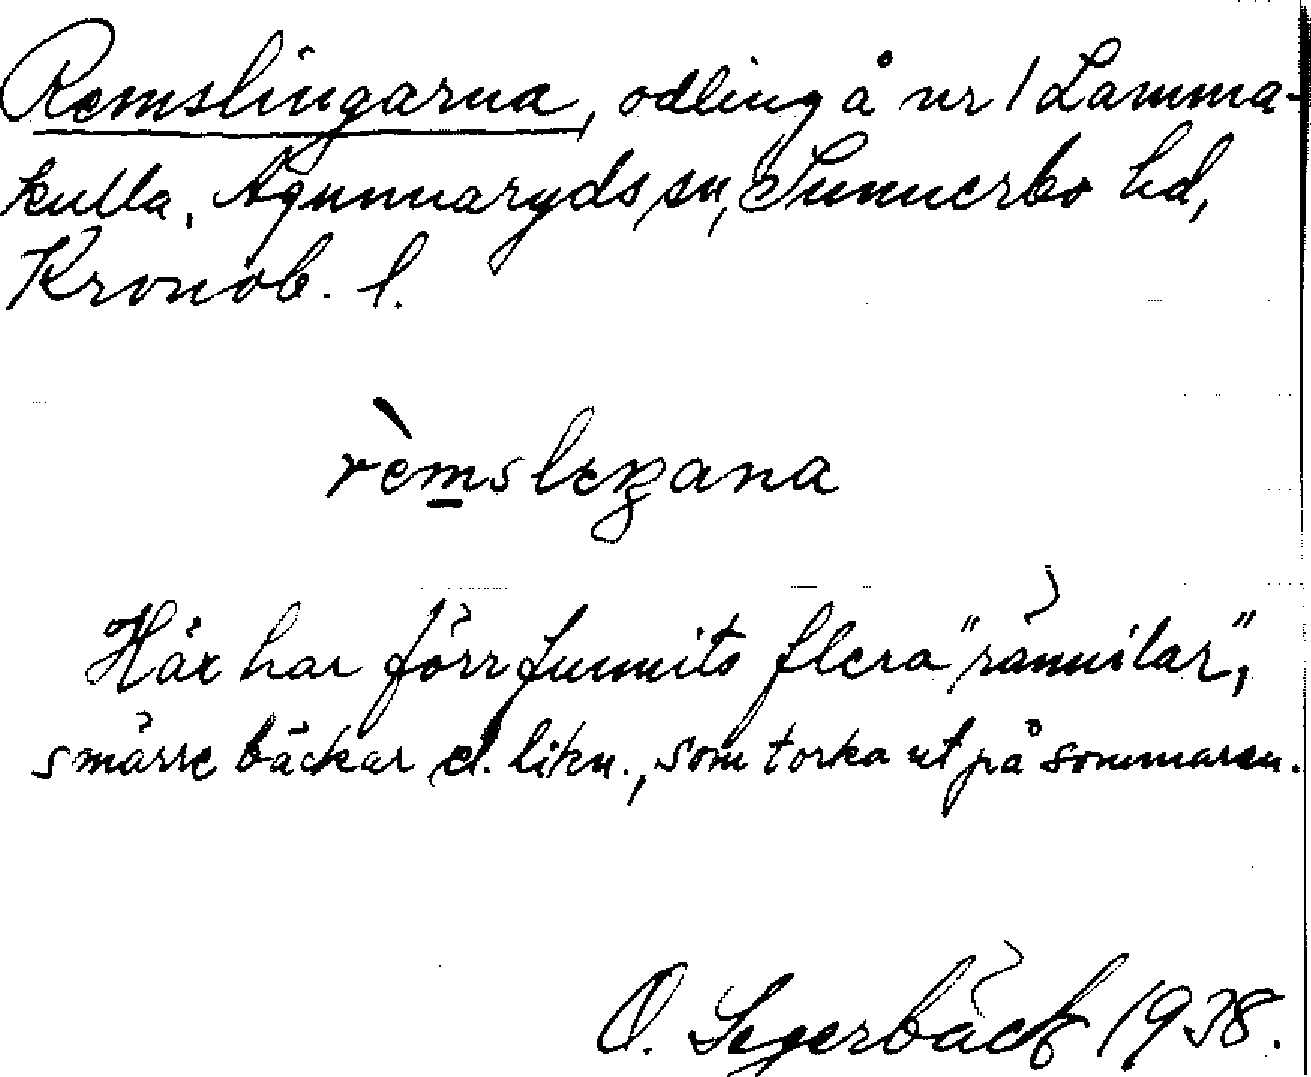 Remslingarna, odling å nr 1 Lamma-
kulla, Agunnaryds sn, Sunnerbo hd,
Kronob. l.
rèmsleŋana
Här har förr funnits flera "rännilar",
smärre bäckar el. likn., som torka ut på sommaren.
O. Segerbäck 1938.